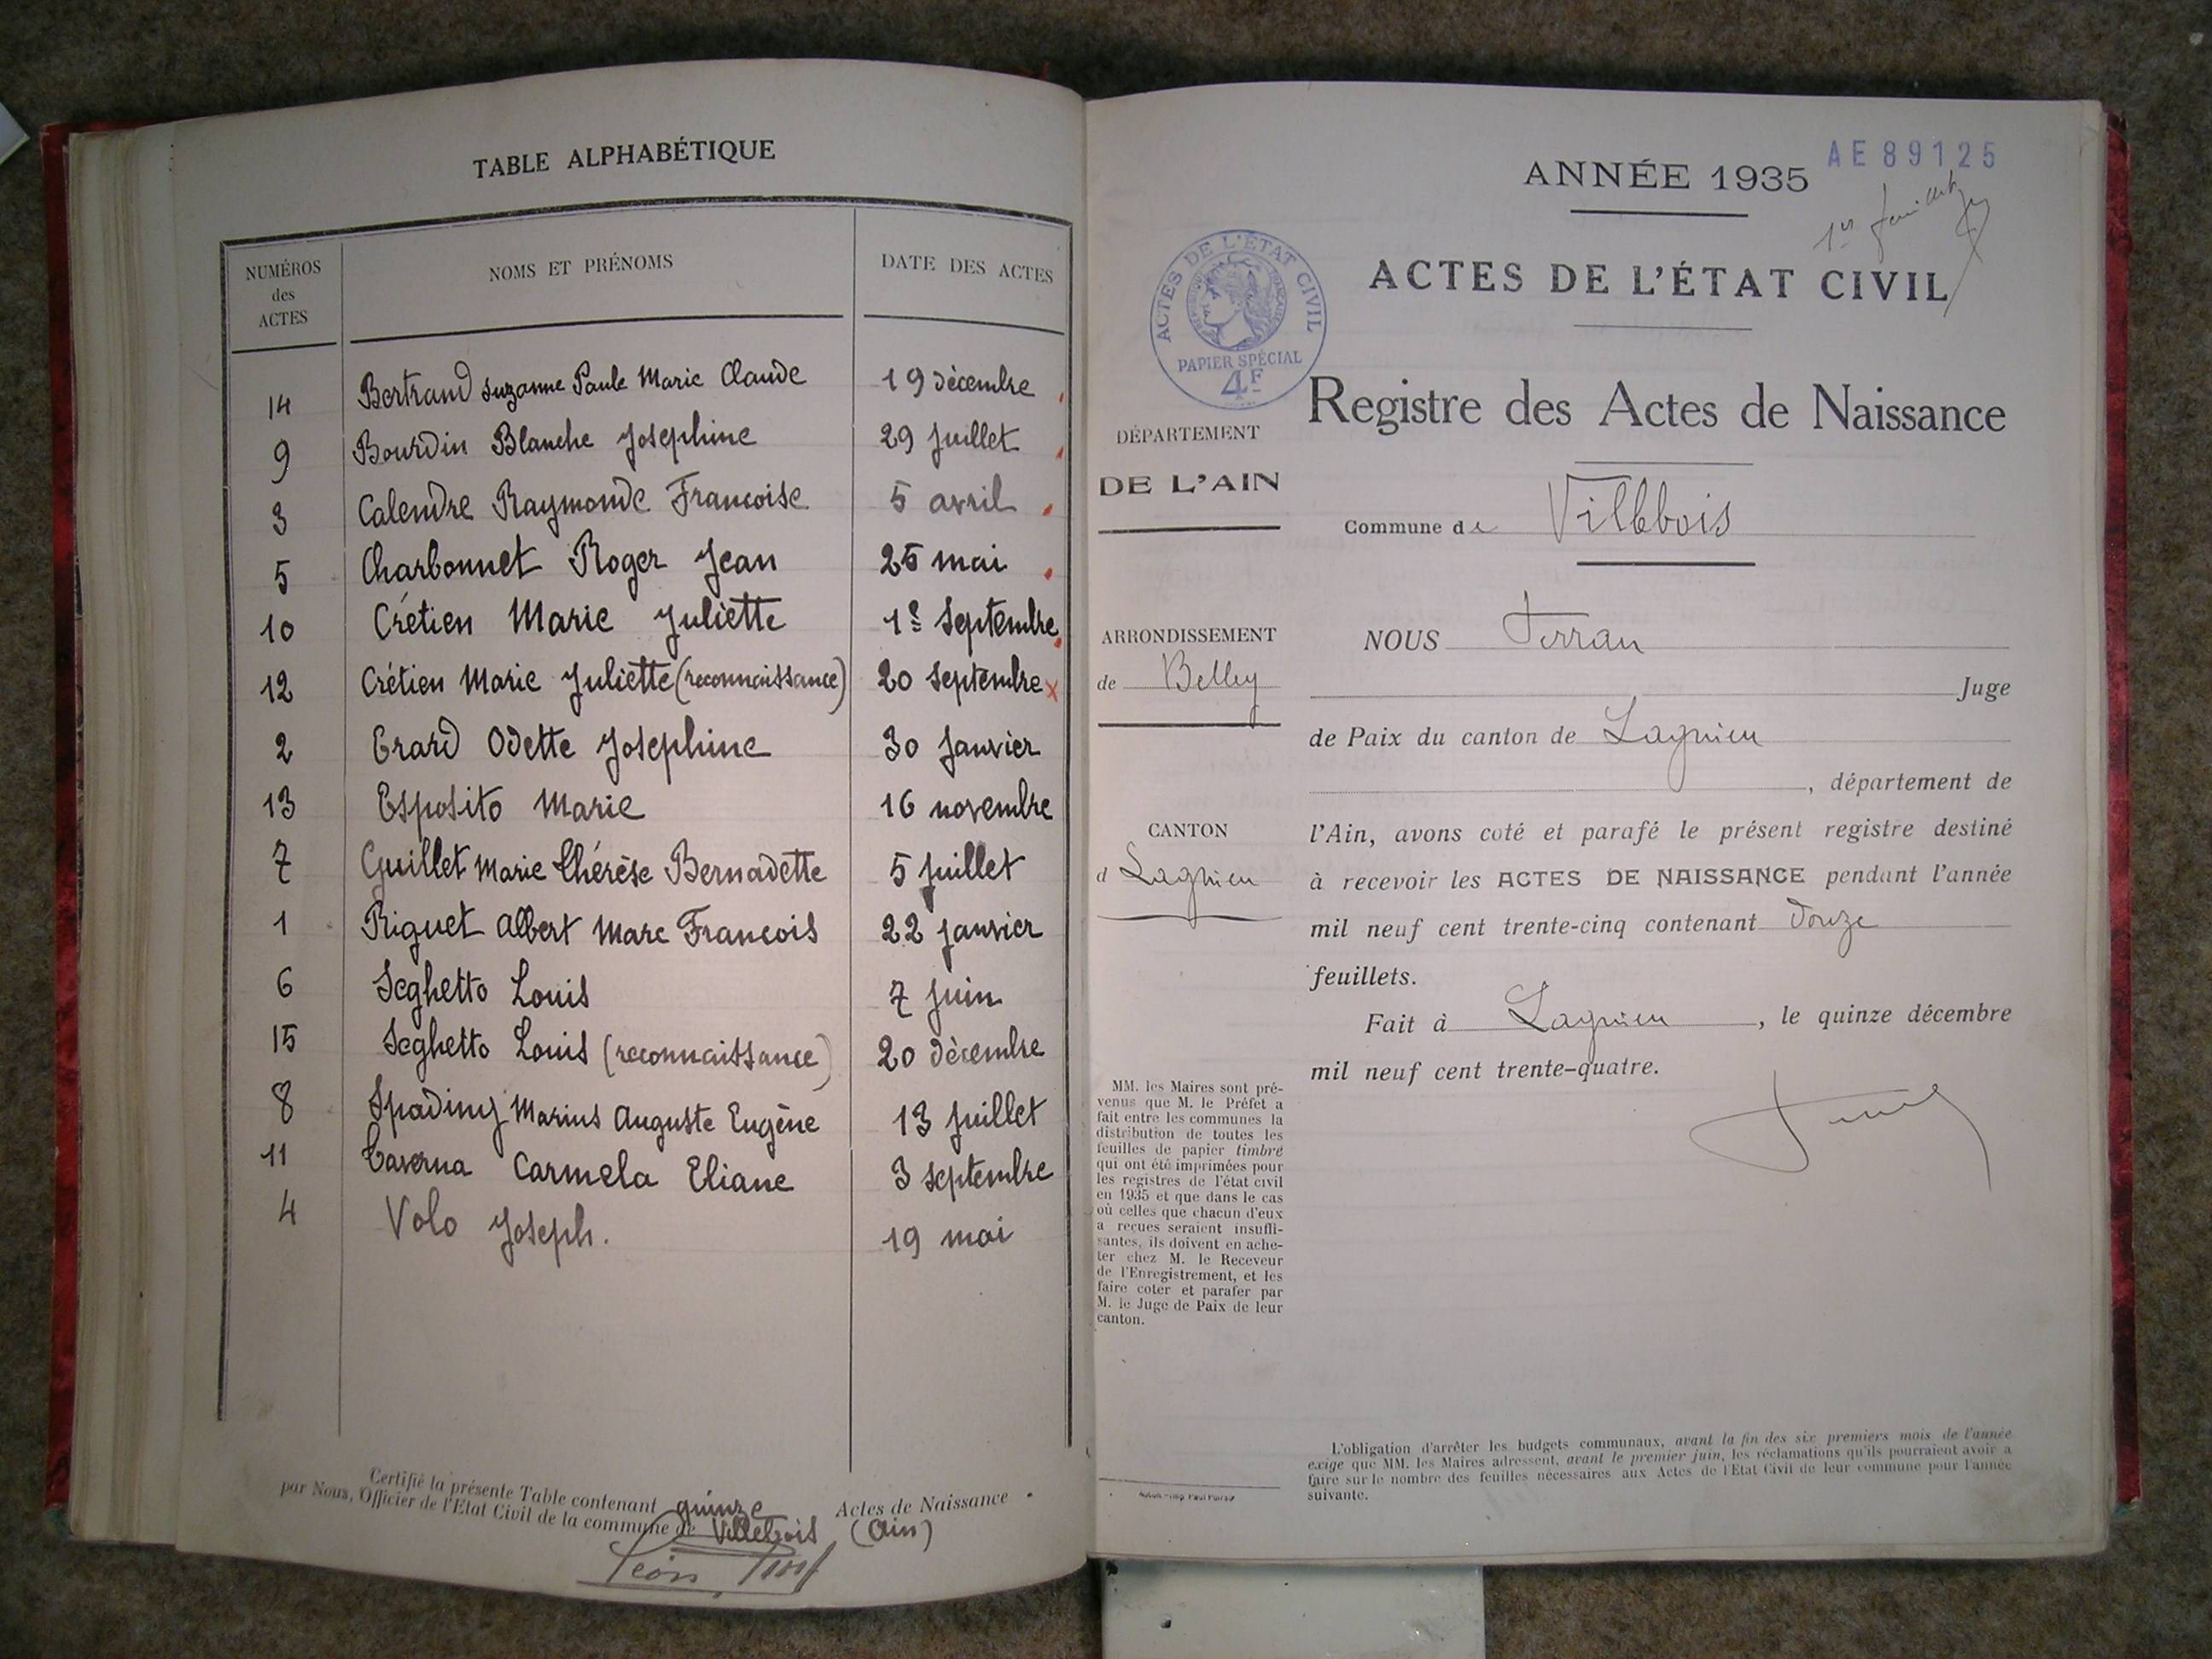 TABLE ALPHABÉTIQUE
NUMÉROS des ACTES NOMS ET PRÉNOMS DATE DES ACTES
14 Bertrand Suzanne Paule Marie Claude 19 décembre
9 Bourdin Blanche Josephine 29 Juillet
3 Calendre Raymonde Francoise 5 avril
5 Charbonnet Roger Jean 25 mai
10 Crétien Marie Juliette 1er Septembre
12 Crétien Marie Juliette (reconnaissance) 20 Septembre x
2 Erard Odette Josephine 30 Janvier
13 Esposito Marie 16 novembre
7 Guillet Marie Thérèse Bernadette 5 Juillet
1 Riguet Albert Marc Francois 22 Janvier
6 Seghetto Louis 7 Juin
15 Seghetto Louis (reconnaissance) 20 décembre
8 Spadiny Marius Auguste Eugène 13 Juillet
11 Taverna Carmela Eliane 3 Septembre
4 Volo Joseph. 19 mai
Certifié la présente Table contenant quinze Actes de Naissance
par Nous, Officier de l'Etat Civil de la commune de Villebois (Ain)
Léon
AE89125
ANNÉE 1935
ACTES DE L'ÉTAT CIVIL
ACTES DE L'ÉTAT CIVIL
RÉPUBLIQUE FRANÇAISE
PAPIER SPÉCIAL
4F
Registre des Actes de Naissance
DÉPARTEMENT
DE L'AIN
Commune de Villebois
ARRONDISSEMENT
de Belley
CANTON
d Lagnieu
NOUS Ferran
Juge
de Paix du canton de Lagnieu
, département de
l'Ain, avons coté et parafé le présent registre destiné
à recevoir les ACTES DE NAISSANCE pendant l'année
mil neuf cent trente-cinq contenant douze
feuillets.
Fait à Lagnieu, le quinze décembre
mil neuf cent trente-quatre.
MM. les Maires sont pré-
venus que M. le Préfet a
fait entre les communes la
distribution de toutes les
feuilles de papier timbré
qui ont été imprimées pour
les registres de l'état civil
en 1935 et que dans le cas
où celles que chacun d'eux
a reçues seraient insuffi-
santes, ils doivent en ache-
ter chez M. le Receveur
de l'Enregistrement, et les
faire coter et parafer par
M. le Juge de Paix de leur
canton.
L'obligation d'arrêter les budgets communaux, avant la fin des six premiers mois de l'année
exige que MM. les Maires adressent, avant le premier juin, les réclamations qu'ils pourraient avoir a
faire sur le nombre des feuilles nécessaires aux Actes de l'Etat Civil de leur commune pour l'année
suivante.